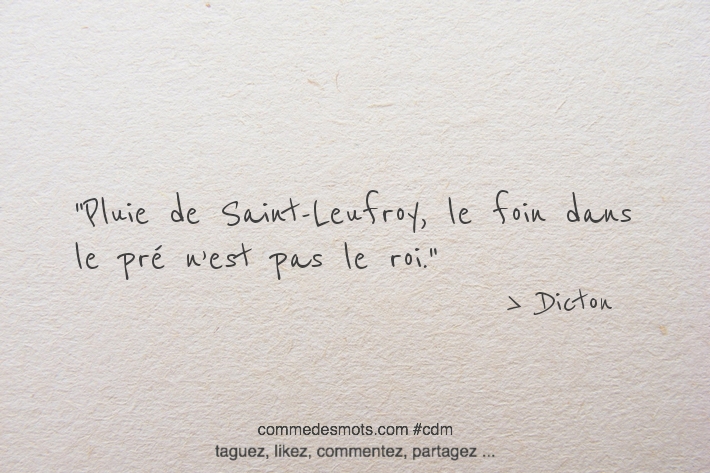 "Pluie de Saint-Leufroy, le foin dans
le pré n'est pas le roi."
> Dicton
commedesmots.com #cdm
taguez, likez, commentez, partagez ...